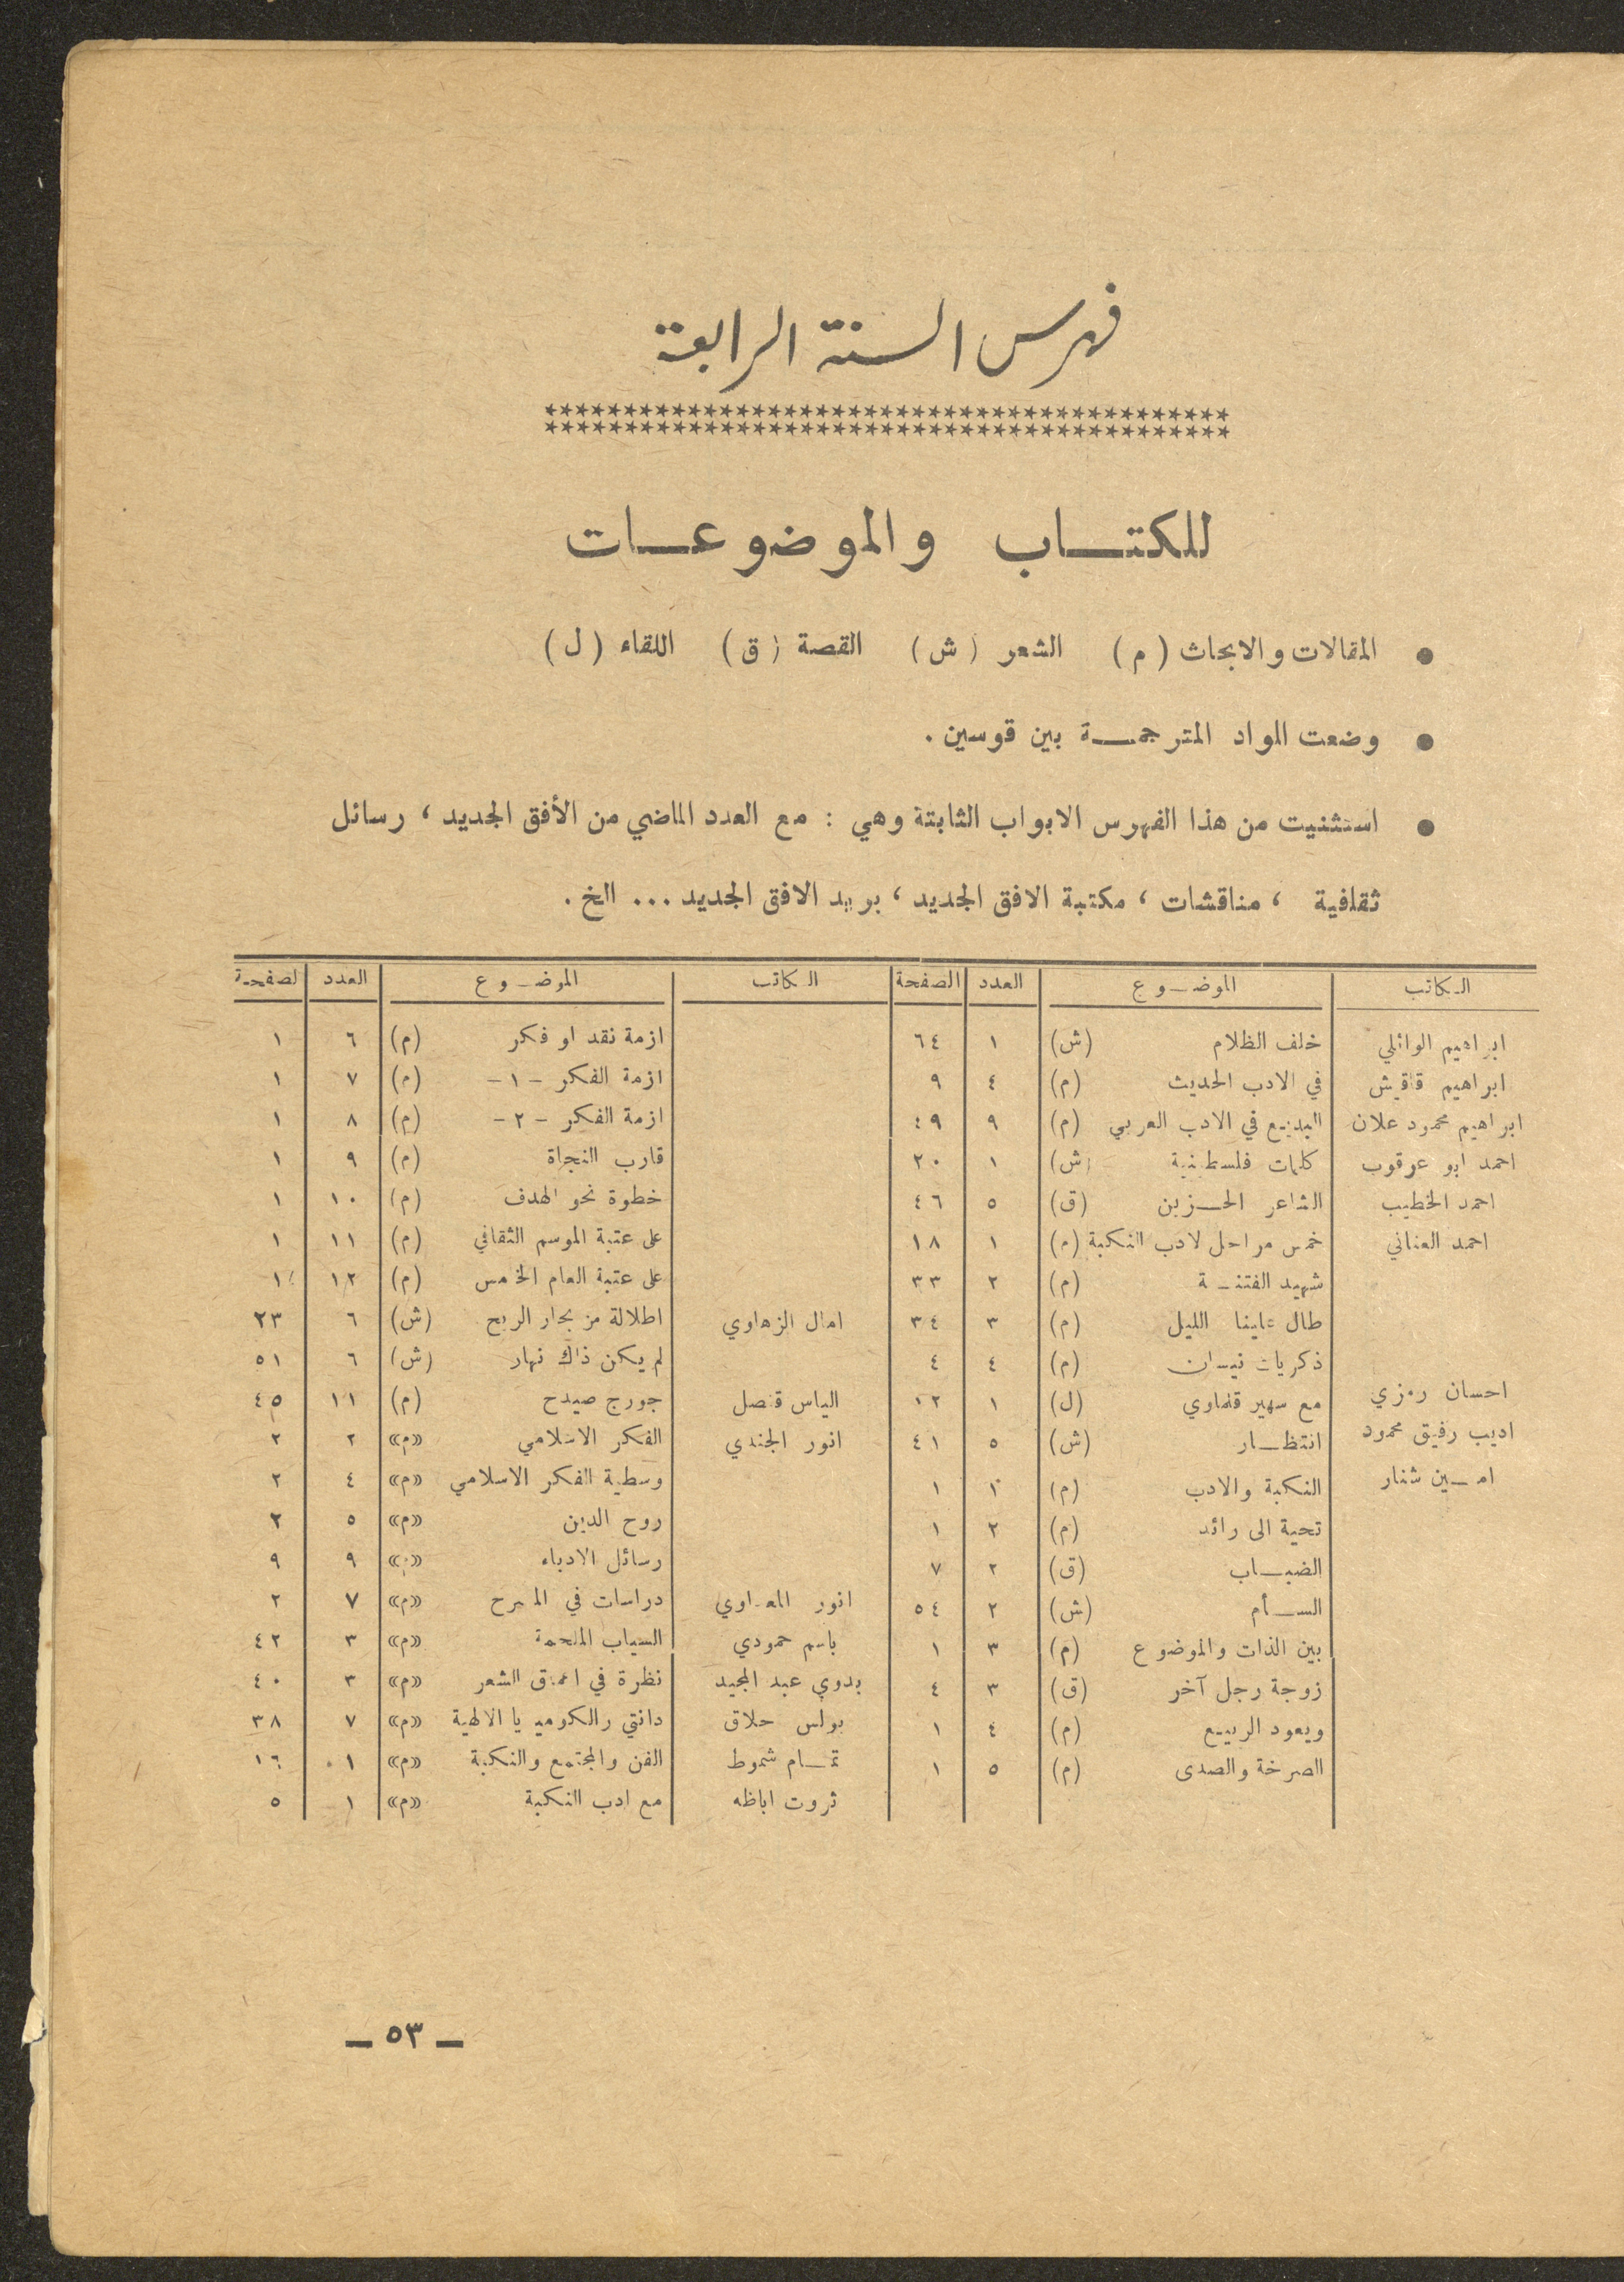 فهرس السنة الرابعة
********************************************
********************************************
للكتـــاب والموضوعـــات
● المقالات والابحاث (م) الشعر (ش) القصة (ق) اللقاء (ل)
● وضعت المواد المترجمـــة بين قوسين.
● استثنيت من هذا الفهرس الابواب الثابتة وهي : مع العدد الماضي من الأفق الجديد ، رسائل
ثقافية ، مناقشات ، مكتبة الافق الجديد ، بريد الافق الجديد ... الخ .
الكاتب الموضـوع العدد الصفحة
ابراهيم الوائلي خلف الظلام (ش) ١ ٦٤
ابراهيم قاقيش في الادب الحديث (م) ٤ ٩
ابراهيم محمود علان البديع في الادب العربي (م) ٩ ٤٩
احمد ابو عرقوب كلمات فلسطينية (ش) ١ ٢٠
احمد الخطيب الشاعر الحـزين (ق) ٥ ٤٦
احمد العناني خمس مراحل لادب النكبة (م) ١ ١٨
شهيد الفتنـة (م) ٢ ٣٣
طال علينا الليل (م) ٣ ٣٤
ذكريات نيسان (م) ٤ ٤
احسان رمزي مع سهير قلماوي (ل) ١ ١٢
اديب رفيق محمود انتظـار (ش) ٥ ٤١
امـين شنار النكبة والادب (م) ١ ١
تحية الى رائد (م) ٢ ١
الضبـاب (ق) ٢ ٧
السـأم (ش) ٢ ٥٤
بين الذات والموضوع (م) ٣ ١
زوجة رجل آخر (ق) ٣ ٤
ويعود الربيع (م) ٤ ١
الصرخة والصدى (م) ٥ ١
الكاتب الموضـوع العدد الصفحة
ازمة نقد او فكر (م) ٦ ١
ازمة الفكر -١- (م) ٧ ١
ازمة الفكر -٢- (م) ٨ ١
قارب النجاة (م) ٩ ١
خطوة نحو الهدف (م) ١٠ ١
على عتبة الموسم الثقافي (م) ١١ ١
على عتبة العام الخامس (م) ١٢ ١
امال الزهاوي اطلالة من بحار الريح (ش) ٦ ٢٣
لم يكن ذاك نهار (ش) ٦ ٥١
الياس قنصل جورج صيدح (م) ١١ ٤٥
انور الجندي الفكر الاسلامي «م» ٢ ٢
وسطية الفكر الاسلامي «م» ٤ ٢
روح الدين «م» ٥ ٢
رسائل الادباء «م» ٩ ٩
انور المعداوي دراسات في المسرح «م» ٧ ٢
باسم حمودي السياب الملحمة «م» ٣ ٤٢
بدوي عبد المجيد نظرة في اعماق الشعر «م» ٣ ٤٠
بولس حلاق دانتي والكوميديا الالهية «م» ٧ ٣٨
تمـام شموط الفن والمجتمع والنكبة «م» ١ ١٦
ثروت اباظه مع ادب النكبة «م» ١ ٥
— ٥٣ —